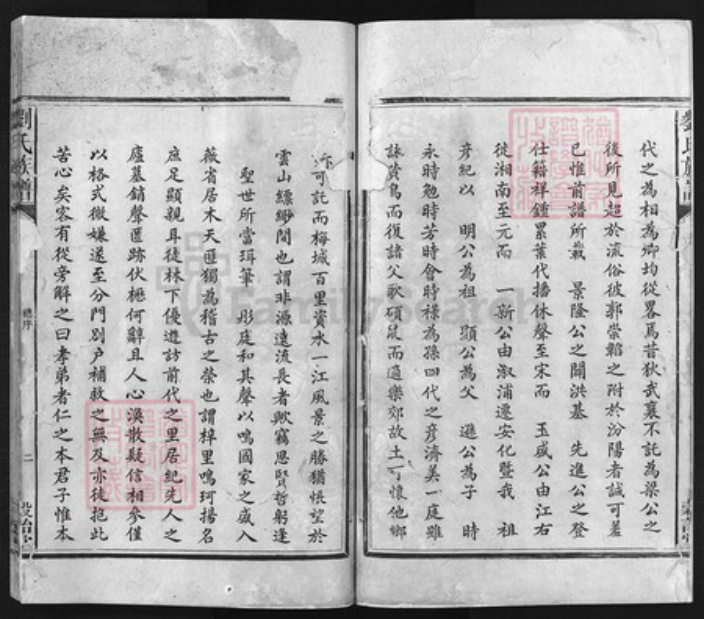 代之為相為卿均從畧焉昔狄武襄不託為梁公之
後所見超於流俗彼郭崇韜之附於汾陽者誠可羞
已惟前譜所載 景隆公之開洪基 先進公之登
仕籍祥鍾累葉代播休聲至宋而 玉成公由江右
徙湘南至元而 一新公由溆浦遷安化暨我 祖
彥紀以 明公為祖 顯公為父 遜公為子 時
永時勉時芳時會時祿為孫四代之彥濟美一庭雖
詠黃鳥而復諸父歌碩鼠而適樂郊故土可懷他鄉
亦可託而梅城百里資水一江風景之勝猶悵望於
雲山縹緲間也謂非源遠流長者歟竊思賢哲躬逢
聖世所當珥筆 彤庭和其聲以鳴國家之盛入
薇省居木天匪獨為稽古之榮也謂梓里鳴珂揚名
庶足顯親耳徒林下優遊訪前代之里居紀先人之
廬墓銷聲匿跡伏櫪何辭且人心渙散疑信相參僅
以格式微嫌遂至分門別戶補救之無及亦徒抱此
苦心矣客有從旁解之曰孝弟者仁之本君子惟本
劉氏族譜
總序
二
FamilySearch